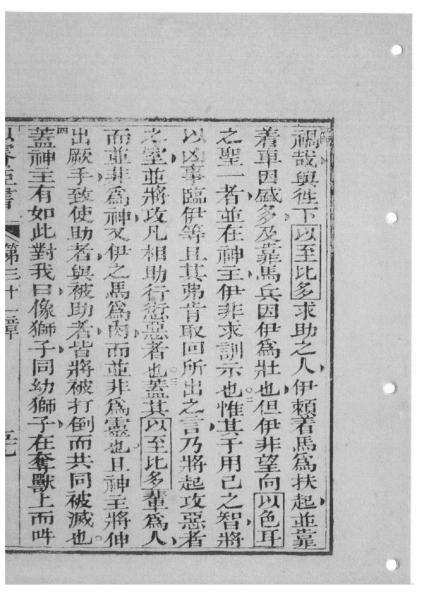 禍哉與徃下以至比多求助之人伊頼着馬為扶起並靠
着車因盛多及靠馬兵因伊為壯也但伊非望向以色耳
之聖一者並在神主伊非求訓示也二惟其于用己之智將
以凶事臨伊等且其弗肯取回所出之言乃將起攻惡者
之室並將攻凡相助行愆惡者也三蓋其以至比多輩為人
而並非為神又伊之馬為肉而並非為靈也且神主將伸
出厥手致使助者與被助者皆將被打倒而共同被滅也
四蓋神主有如此對我曰像獅子同幼獅子在奪獸上而吽
第三十一章